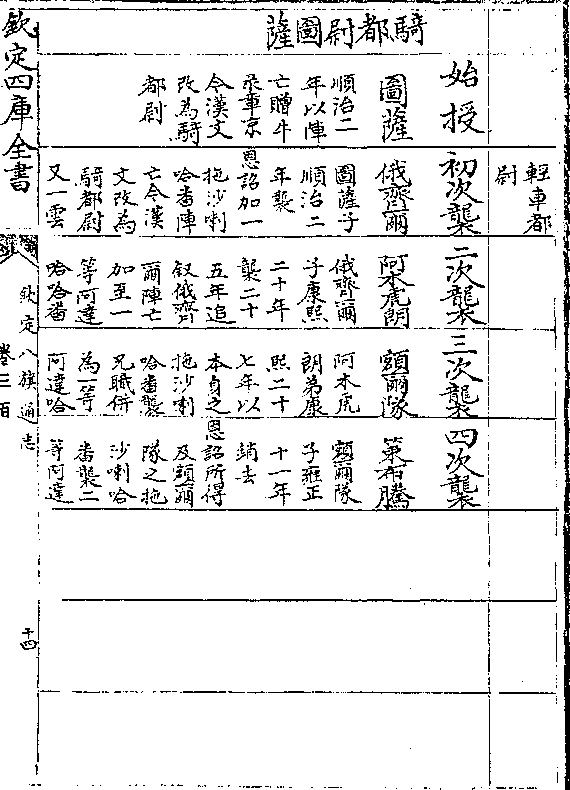 騎都尉圖薩
輕車都
尉
始授
圖薩
順治二
年以陣
亡贈牛
彔章京
令漢文
改為騎
都尉
初次襲
俄齊爾
圖薩子
順治二
年襲
恩詔加一
拖沙喇
哈番陣
亡令漢
文改為
騎都尉
又一雲
二次襲
阿木虎朗
俄齊爾
子康熙
二十年
襲二十
五年追
敘俄齊
爾陣亡
加至一
等阿達
哈哈番
三次襲
額爾隊
阿木虎
朗弟康
熙二十
七年以
本身之
拖沙喇
哈番襲
兄職併
為一等
阿達哈
四次襲
策布騰
額爾隊
子雍正
十一年
銷去
恩詔所得
及額爾
隊之拖
沙喇哈
番襲二
等阿達
欽定四庫全書
欽定八旗通志
卷三百
十四